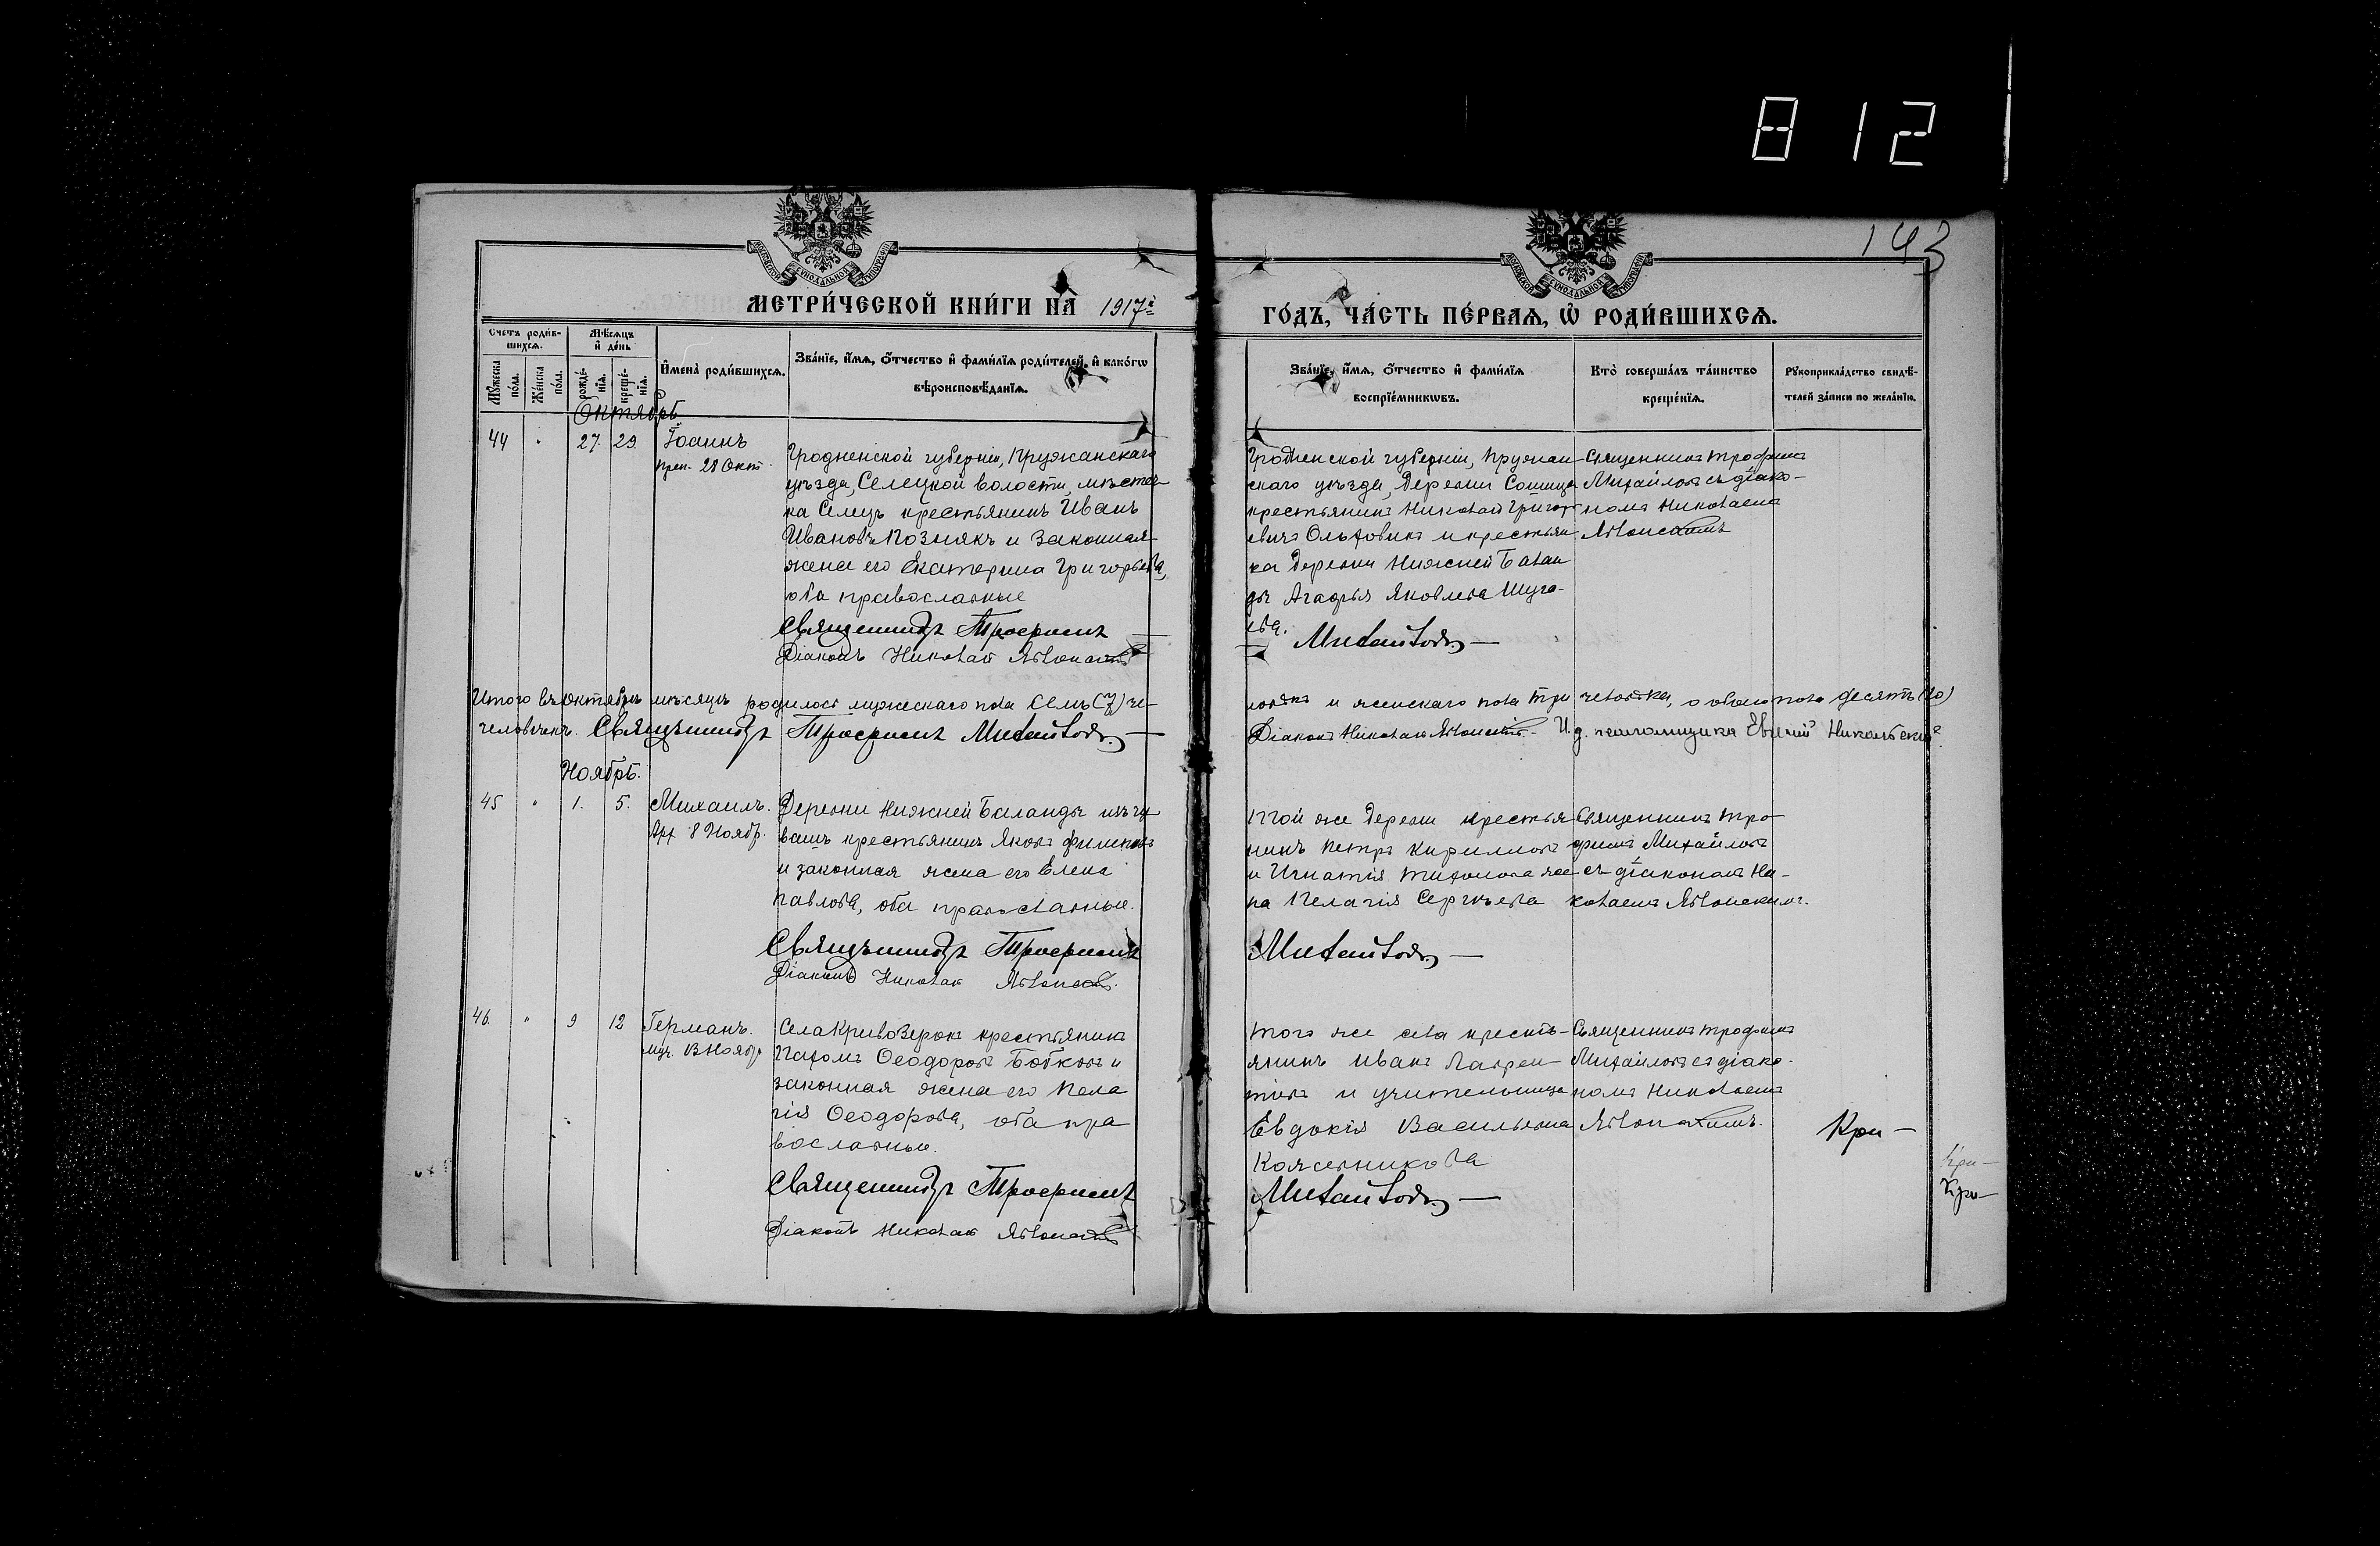 812
143
МЕТРИ́ЧЕСКОЙ КНИ́ГИ НА 1917й
ГО́ДЪ, ЧА́СТЬ ПЕ́РВАѦ, Ѡ҆ РОДИ́ВШИХСѦ.
Счетъ роди́в-
шихсѧ.
Мѣ́сѧцъ
и҆ де́нь
Мꙋ́жеска
по́ла.
Же́нска
по́ла.
рожде́-
нїѧ.
креще́-
нїѧ.
И҆мена̀ роди́вшихсѧ.
Зва́нїе, и҆́мѧ, ѻ҆́тчество и҆ фами́лїѧ роди́телей, и҆ како́гѡ
вѣроисповѣ́данїѧ.
Зва́нїе, и҆́мѧ, ѻ҆́тчество и҆ фами́лїѧ
воспрїе́мникѡвъ.
Кто̀ соверша́лъ та́инство
креще́нїѧ.
Рꙋкоприкла́дство свидѣ́-
телей за́писи по жела́нїю.
Октябрь
44 " 27. 29. Іоаннъ
преп. 28 Окт.
Гродненской губерніи, Пружанскаго
уѣзда, Селецкой волости, мѣстеч-
ка Селецъ крестьянинъ Иванъ
Ивановъ Познякъ и законная
жена его Екатерина Григорьева,
оба православные
Священникъ Трофимъ
Діаконъ Николай
Гродненской губерніи, Пружан-
скаго уѣзда, деревни
крестьянинъ Николай Григорь-
евичъ и крестьян-
ка деревни Нижней Балан-
ды Агафья Яковлева Шуга-
ева.
Михайловъ
Священникъ Трофимъ
Михайловъ съ діако-
номъ Николаемъ
Итого въ октябрѣ мѣсяцѣ родилось мужескаго пола семь (7) че-
ловѣкъ и женскаго пола три человѣка, а обоего пола десять (10)
человѣкъ. Священникъ Трофимъ Михайловъ
Діаконъ Николай И. д. псаломщика Евгеній Никольскій
Ноябрь.
45 " 1. 5. Михаилъ.
Арх. 8 Ноябр.
Деревни Нижней Баланды изъ чу-
вашъ крестьянинъ Яковъ Филиповъ
и законная жена его Елена
Павлова, оба православные.
Священникъ Трофимъ
Діаконъ Николай
Той же деревни крестья-
нинъ Петръ Кирилловъ
и Игнатія Тихонова же-
на Пелагія Сергѣева
Михайловъ
Священникъ Тро-
фимъ Михайловъ
съ діакономъ Ни-
колаемъ
46. " 9 12 Германъ.
муч. 13 Ноябр.
Села Кривозерокъ крестьянинъ
Пахомъ Ѳеодоровъ Бобковъ и
законная жена его Пела
гія Ѳеодорова, оба пра
вославные.
Священникъ Трофимъ
Діаконъ Николай
Того же села кресть-
янинъ Иванъ Лаврен-
тьевъ и учительница
Евдокія Васильевна
Кожевникова
Михайловъ
Священникъ Трофимъ
Михайловъ съ діако-
номъ Николаемъ
Кри-
Кри-
Кри-